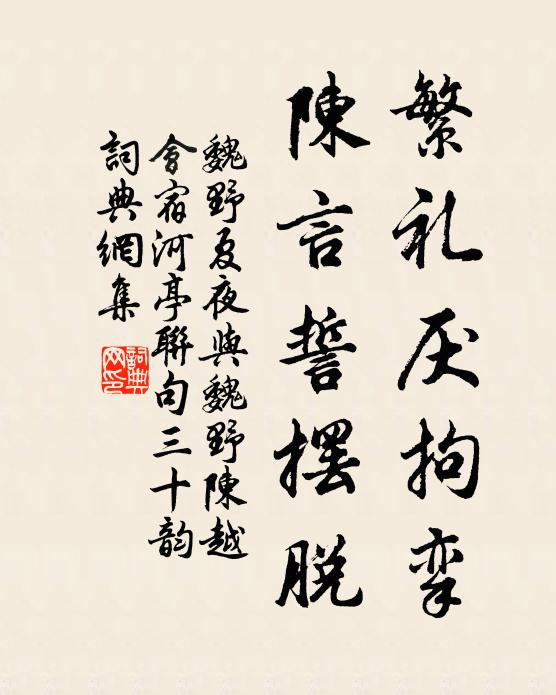 繁礼厌拘挛
陳言誓擺脱
魏野夏夜與魏野陳越
會宿河亭聯句三十韵
詞典網集
詞典网印